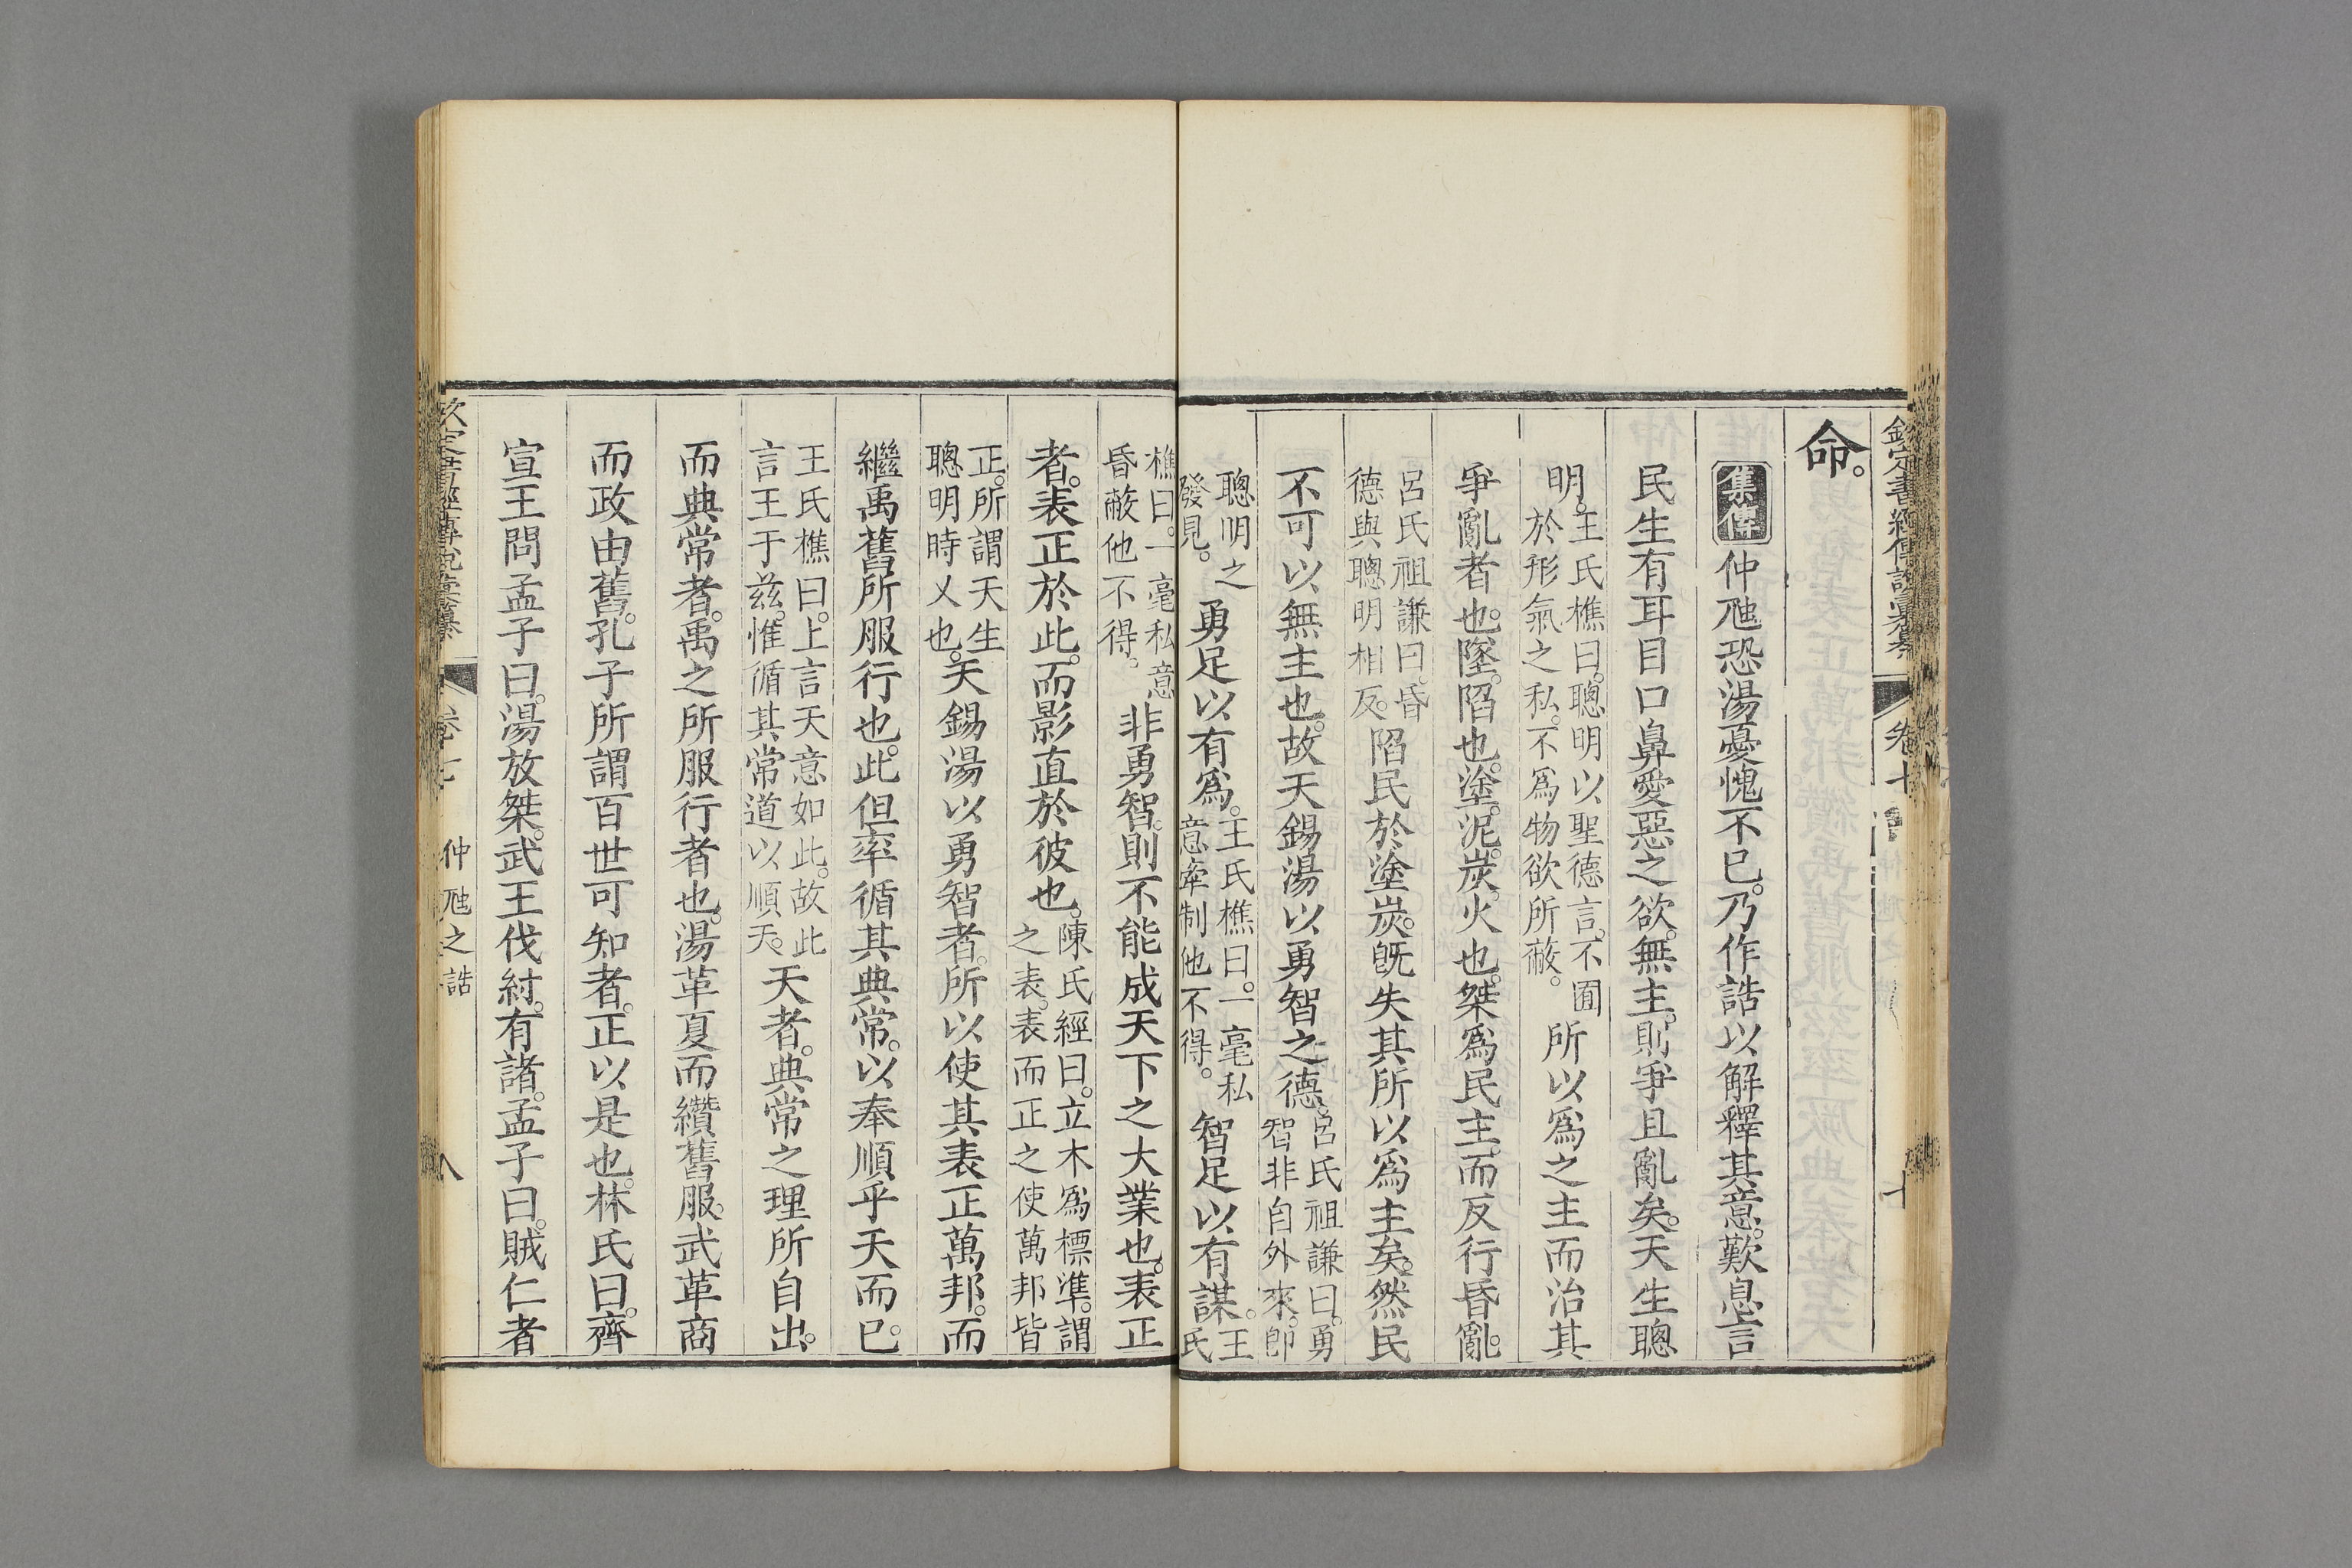 欽定書經傳說彙纂 卷七
命。
集傳 仲虺恐湯憂愧不已。乃作誥以解釋其意。歎息言
民生有耳目口鼻愛惡之欲。無主。則爭且亂矣。天生聰
明。王氏樵曰。聰明以聖德言。不囿於形氣之私。不爲物欲所蔽。所以爲之主而治其
爭亂者也。墜。陷也。塗。泥。炭。火也。桀爲民主。而反行昏亂。
呂氏祖謙曰。昏德與聰明相反。陷民於塗炭。旣失其所以爲主矣。然民
不可以無主也。故天錫湯以勇智之德。呂氏祖謙曰。勇智非自外來。卽
聰明之發見。勇足以有爲。王氏樵曰。一毫私意牽制他不得。智足以有謀。王氏
樵曰。一毫私意昏蔽他不得。非勇智。則不能成天下之大業也。表正
者。表正於此。而影直於彼也。陳氏經曰。立木爲標準。謂之表。表而正之使萬邦皆
正。所謂天生聰明時乂也。天錫湯以勇智者。所以使其表正萬邦。而
繼禹舊所服行也。此但率循其典常。以奉順乎天而已。
王氏樵曰。上言天意如此。故此言王于兹。惟循其常道以順天。天者。典常之理所自出。
而典常者。禹之所服行者也。湯革夏而纘舊服。武革商
而政由舊。孔子所謂百世可知者。正以是也。林氏曰。齊
宣王問孟子曰。湯放桀。武王伐紂。有諸。孟子曰。賊仁者
欽定書經傳說彙纂 卷七 仲虺之誥 八